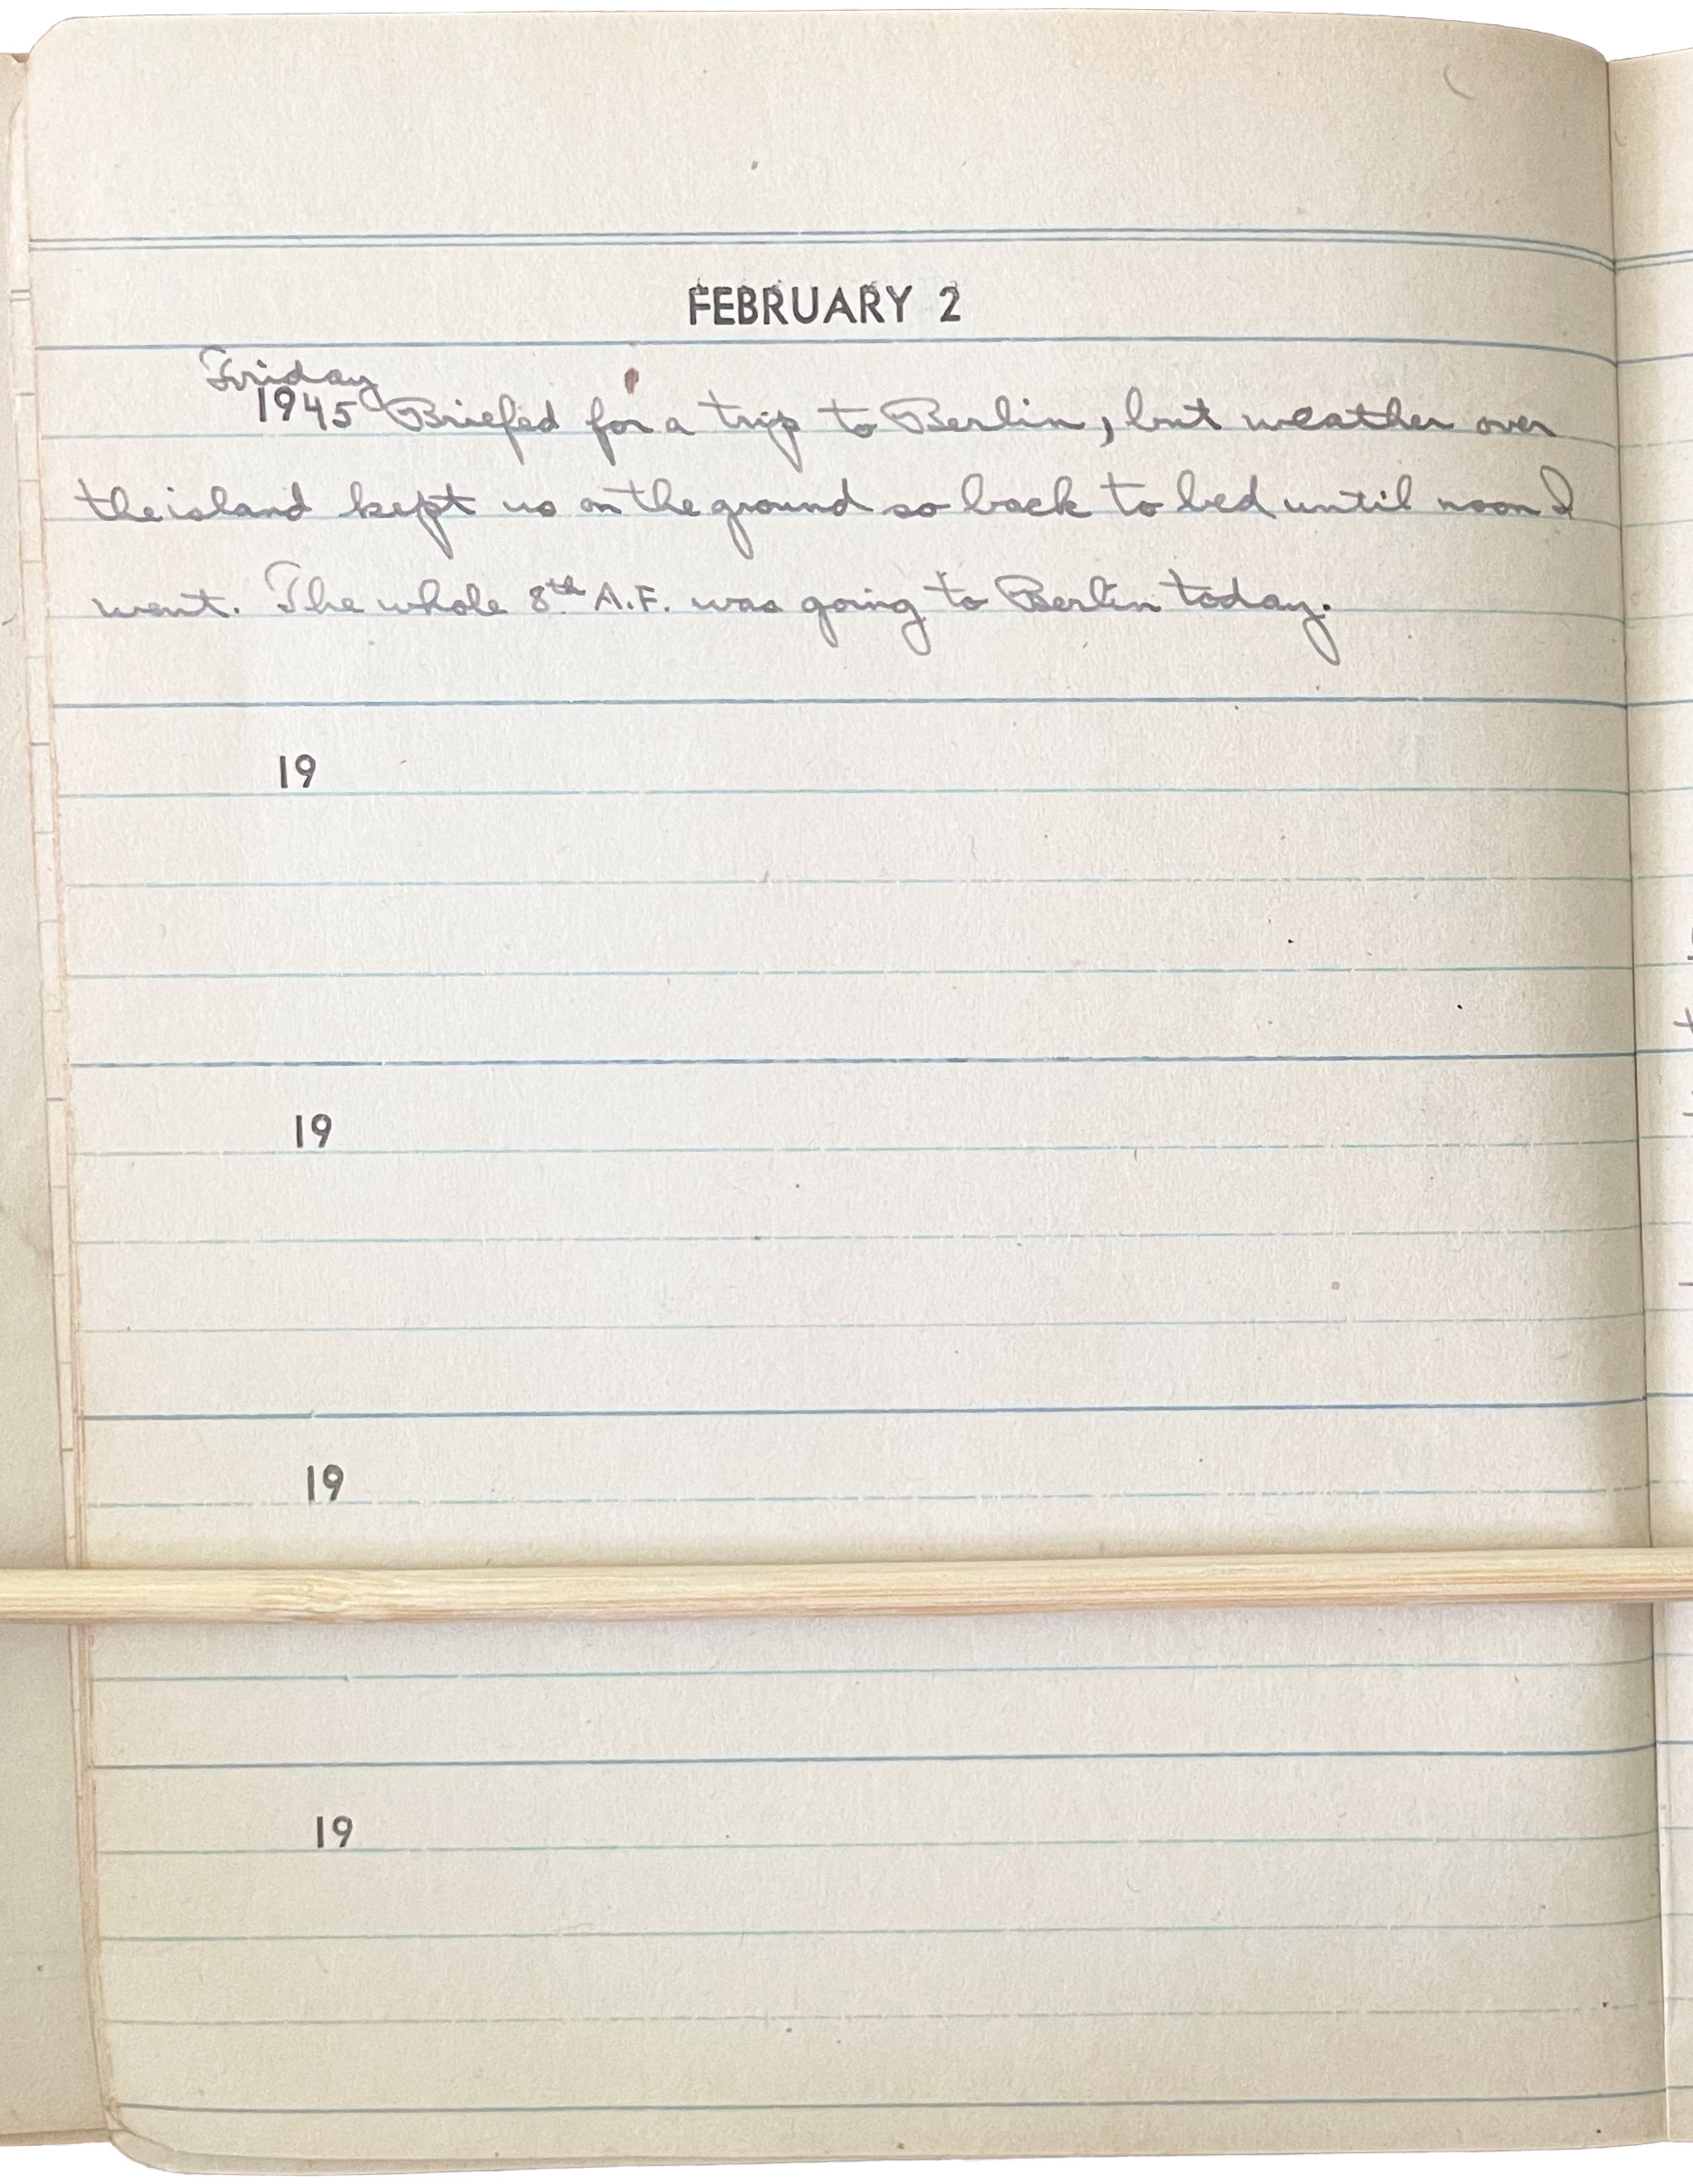 FEBRUARY 2
Friday
1945 Briefed for a trip to Berlin, but weather over
the island kept us on the ground so back to bed until noon I
went. The whole 8th A.F. was going to Berlin today.
19
19
19
19